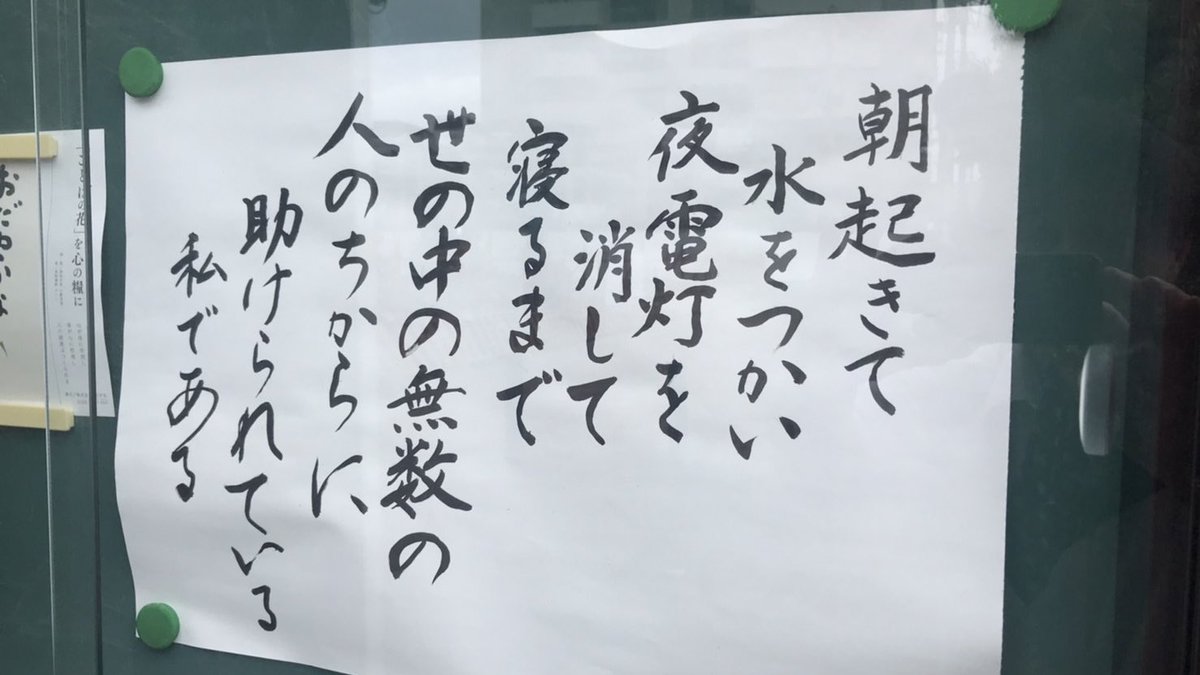 朝起きて
水をつかい
夜電灯を
消して
寝るまで
世の中の無数の
人のちからに
助けられている
私である
を心の糧に